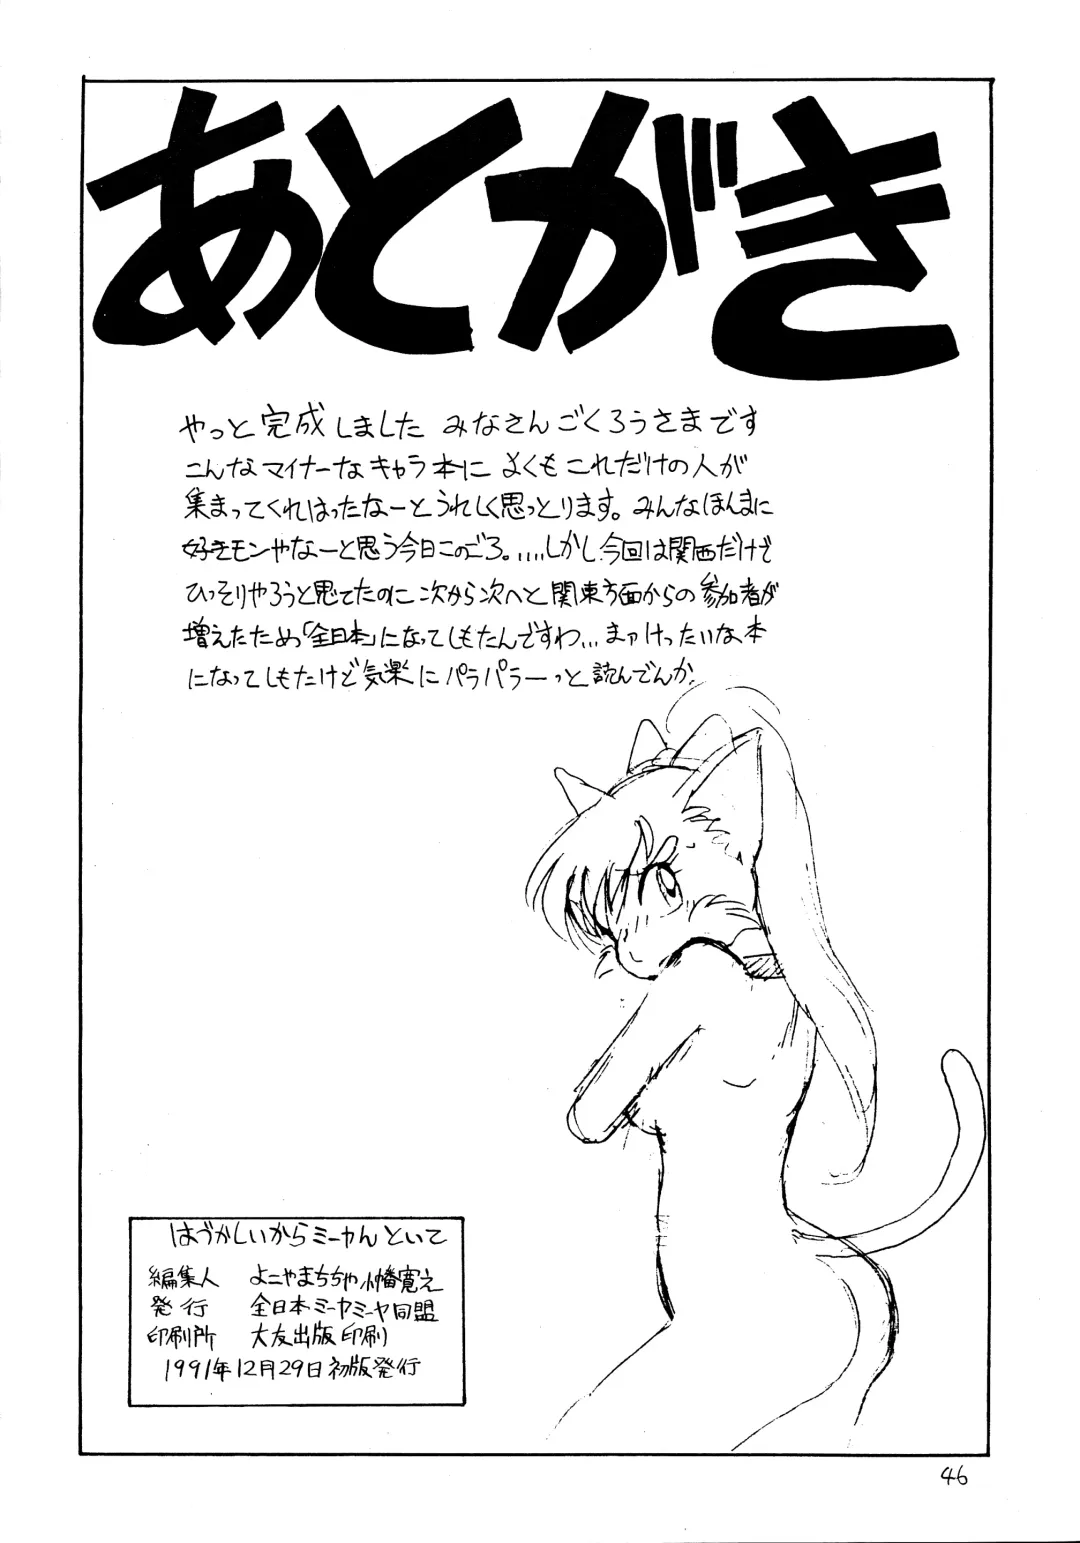 あとがき
やっと完成しました みなさんごくろうさまです
こんなマイナーなキャラ本に よくもこれだけの人が
集まってくれはったなーとうれしく思っとります。みんなほんまに
好きモンやなーと思う今日このごろ。....しかし今回は関西だけで
ひっそりやろうと思てたのに次から次へと関東方面からの参加者が
増えたため「全日本」になってしもたんですわ...まァけったいな本
になってしもたけど気楽にパラパラーっと読んでんか.
はづかしいからミーやんといて
編集人 よこやまちちや 小幡寛え
発行 全日本ミーヤミーヤ同盟
印刷所 大友出版印刷
1991年12月29日初版発行
46